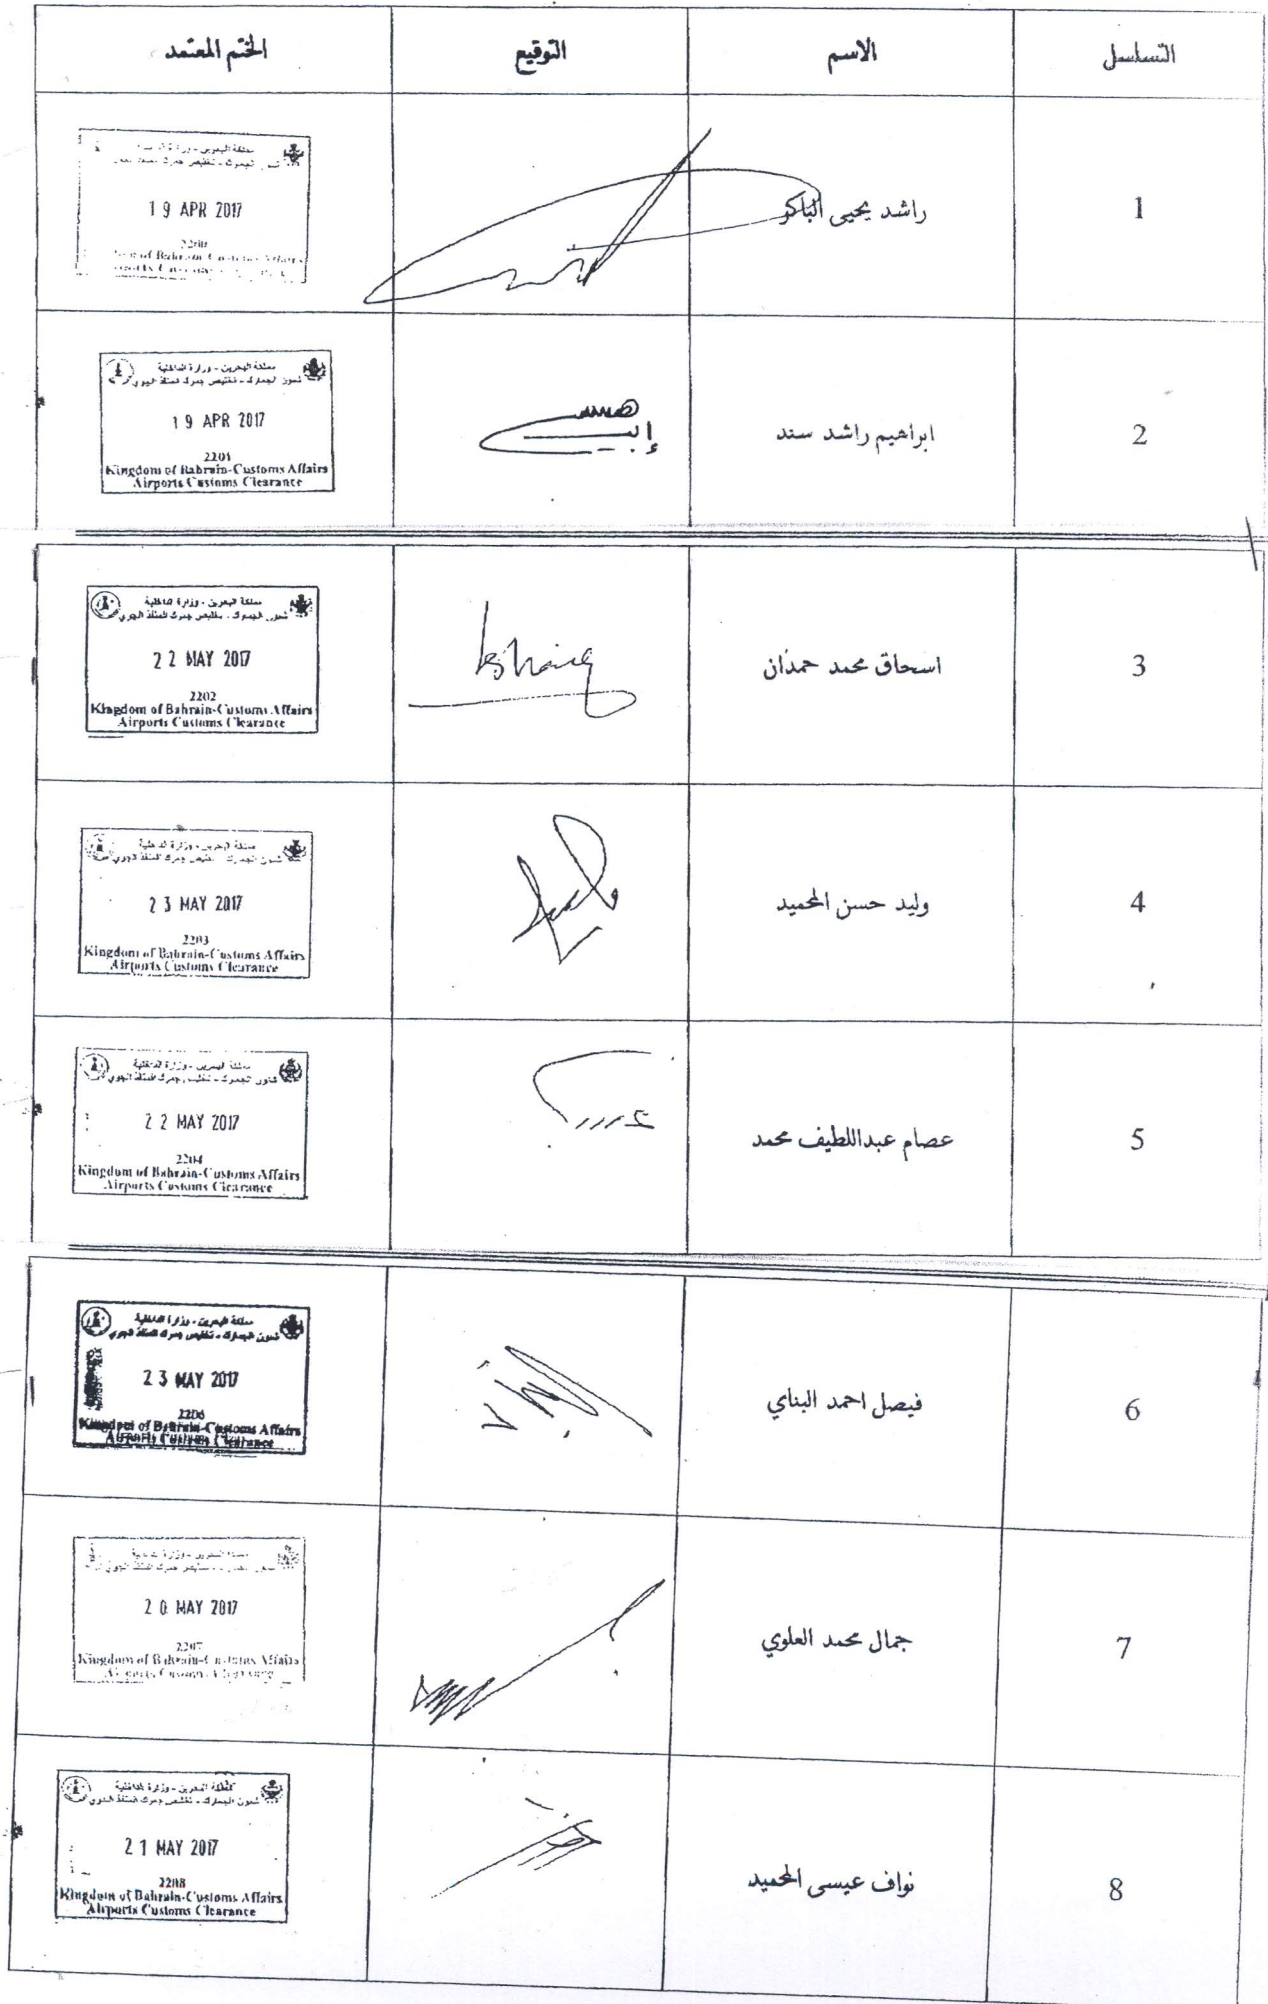 التسلسل الاسم التوقيع الختم المعتمد
1 راشد يحيى الباكر
مملكة البحرين - وزارة
19 APR 2017
2200
of Bahrain-Customs Affairs
2 ابراهيم راشد سند
مملكة البحرين - وزارة الداخلية
شئون الجمارك - تخليص جمرك المنفذ الجوي
19 APR 2017
2201
Kingdom of Bahrain-Customs Affairs
Airports Customs Clearance
3 اسحاق محمد حمدان
Ishaiq
مملكة البحرين - وزارة الداخلية
شئون الجمارك - تخليص جمرك المنفذ الجوي
22 MAY 2017
2202
Kingdom of Bahrain-Customs Affairs
Airports Customs Clearance
4 وليد حسن المحميد
مملكة البحرين - وزارة الداخلية
شئون الجمارك - تخليص جمرك المنفذ الجوي
23 MAY 2017
2203
Kingdom of Bahrain-Customs Affairs
Airports Customs Clearance
5 عصام عبداللطيف محمد
مملكة البحرين - وزارة الداخلية
شئون الجمارك - تخليص جمرك المنفذ الجوي
22 MAY 2017
2204
Kingdom of Bahrain-Customs Affairs
Airports Customs Clearance
6 فيصل احمد البناي
مملكة البحرين - وزارة الداخلية
شئون الجمارك - تخليص جمرك المنفذ الجوي
23 MAY 2017
2206
Kingdom of Bahrain-Customs Affairs
Airports Customs Clearance
7 جمال محمد العلوي
مملكة البحرين - وزارة الداخلية
شئون الجمارك - تخليص جمرك المنفذ الجوي
20 MAY 2017
2207
Kingdom of Bahrain-Customs Affairs
Airports Customs Clearance
8 نواف عيسى المحميد
مملكة البحرين - وزارة الداخلية
شئون الجمارك - تخليص جمرك المنفذ الجوي
21 MAY 2017
2208
Kingdom of Bahrain-Customs Affairs
Airports Customs Clearance